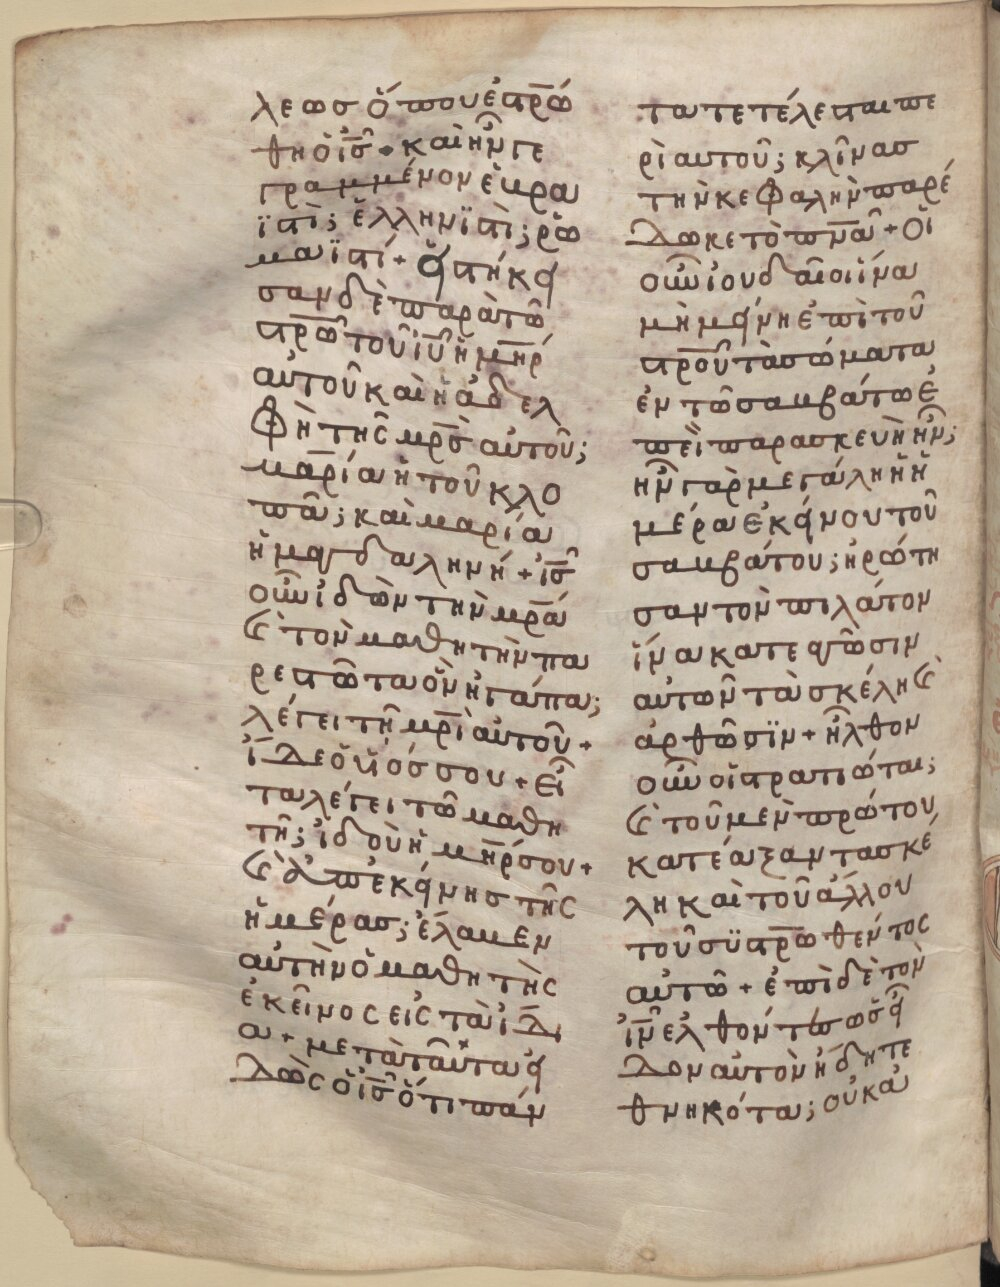 λεωσ ὅπου ἐστρώ
θη ὁ ἰς̅ + καὶ ἦν γε
γραμμένον ἑβρα
ϊστὶ; ἑλληνϊστὶ; ῥω
μαϊστί + εἱστήκει
σαν δὲ παρὰ τῶ
στρω̅ τοῦ ἰυ̅ ἡ μη̅ρ
αὐτοῦ καὶ ἡ ἀδελ
φὴ τῆς μρ̅σ αὐτοῦ;
μαρία ἡ τοῦ κλο
πᾶ; καὶ μαρία
ἡ μαγδαλημή + ἰς̅
οὖν ἰδὼν τὴν μρ̅α
ϗ τὸν μαθητὴν πα
ρεστῶτα ὃν ἠγάπα;
λέγει τῆ μρ̅ὶ αὐτοῦ +
ἴδε ὁ υἱός σου + εἶ
τα λέγει τῶ μαθη
τῆ; ἰδοὺ ἡ μη̅ρ σου +
ϗ ἀπ' ἐκείνησ τῆς
ἡμέρασ; ἔλαβεν
αὐτὴν ὁ μαθητὴς
ἐκεῖνος εἰς τὰ ἴδι
α + μετὰ ταῦτα εἰ
δὼς ὁ ἰς̅ ὅτι πάν
τα τετέλεσται πε
ρὶ αυτοῦ; κλῖνασ
τὴν κεφαλὴν παρέ
δωκε τὸ πν̅α + Οἱ
οὖν ἰουδαῖοι ἵνα
μὴ μείνη ἐπὶ τοῦ
στρο̅υ τὰ σώματα
ἐν τῶ σαββάτω ἐ
πεὶ παρασκευὴ ἦν;
ἦν γὰρ μεγάλη ἡ ἡ
μέρα ἐκείνου τοῦ
σαββάτου; ἠρώτη
σαν τὸν πιλάτον
ἵνα κατεαγῶσιν
αὐτων τὰ σκέλη ϗ
ἀρθῶσϊν + ἦλθον
οὖν οἱ στρατιῶται;
ϗ τοῦ μὲν πρώτου
κατέαξαν τα σκέ
λη καὶ τοῦ ἄλλου
τοῦ σϋστρω̅θέντος
αὐτῶ + ἐπὶ δὲ τὸν
ἰν̅ ἐλθόντεσ ὡσ εἶ
δον αὐτὸν ἤδη τε
θνηκότα; οὐ κα